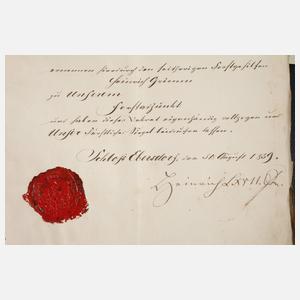 ernennen hierdurch den seitherigen Forstgehilfen
Heinrich Grimm
zu Unserem
Forstadjunkt
und haben dieses Dekret eigenhändig vollzogen und
Unser Fürstliches Siegel beidrücken lassen.
Schloß Ebersdorf, den 30 August 1859.
Heinrich LXVII